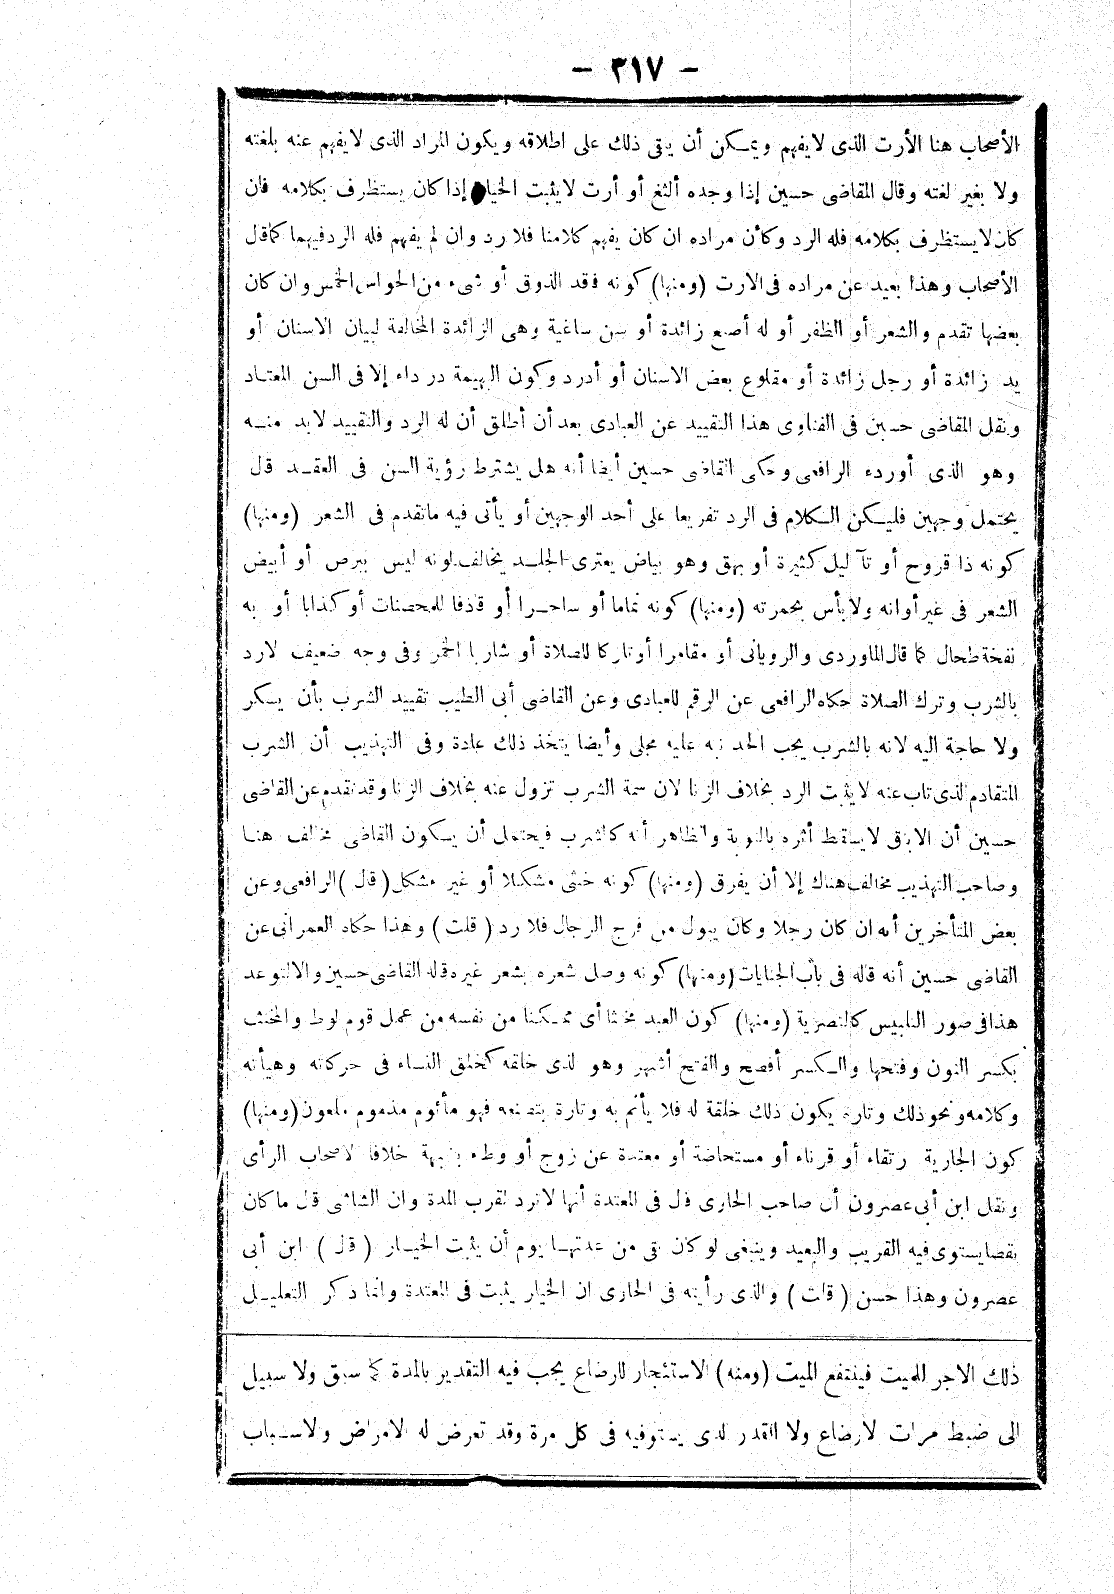 - ٣١٧ -
الأصحاب هنا الأرت الذى لايفهم ويمكن أن يبقى ذلك على اطلاقه ويكون المراد الذى لايفهم عنه بلغته
ولا بغير لغته وقال القاضى حسين إذا وجده ألثغ أو أرت لايثبت الخيار إذا كان يستظرف بكلامه فان
كان لايستظرف بكلامه فله الرد وكأن مراده ان كان يفهم كلامنا فلا رد وان لم يفهم فله الرد فيهما كما قال
الأصحاب وهذا بعيد عن مراده فى الارت (ومنها) كونه فاقد الذوق أو شىء من الحواس الخمس وان كان
بعضها تقدم والشعر أو الظفر أو له أصبع زائدة أو سن ساغية وهى الزائدة المخالفة لبيان الاسنان أو
يد زائدة أو رجل زائدة أو مقلوع بعض الاسنان أو أدرد وكون البهيمة درداء إلا فى السن المعتاد
ونقل القاضى حسين فى الفتاوى هذا التقييد عن العبادى بعد أن أطلق أن له الرد والتقييد لابد منه
وهو الذى أورده الرافعى وحكى القاضى حسين أيضا أنه هل يشترط رؤية السن فى العقد قال
يحتمل وجهين فليكن الكلام فى الرد تفريعا على أحد الوجهين أو يأتى فيه ماتقدم فى الشعر (ومنها)
كونه ذا قروح أو ثآليل كثيرة أو بهق وهو بياض يعترى الجلد يخالف لونه ليس ببرص أو أبيض
الشعر فى غير أوانه ولا بأس بحمرته (ومنها) كونه نماما أو ساحرا أو قاذفا للمحصنات أو كذابا أو به
نفخة طحال كما قال الماوردى والرويانى أو مقامرا أو تاركا للصلاة أو شاربا الخمر وفى وجه ضعيف لارد
بالشرب وترك الصلاة حكاه الرافعى عن الرقم للعبادى وعن القاضى أبى الطيب تقييد الشرب بأن يسكر
ولا حاجة اليه لانه بالشرب يجب الحد نبه عليه مجلى وأيضا يتخذ ذلك عادة وفى التهذيب أن الشرب
المتقادم الذى تاب عنه لايثبت الرد بخلاف الزنا لان سمة الشرب تزول عنه بخلاف الزنا وقد تقدم عن القاضى
حسين أن الاباق لايسقط أثره بالتوبة والظاهر أنه كالشرب فيحتمل أن يكون القاضى مخالف هنا
وصاحب التهذيب مخالف هناك إلا أن يفرق (ومنها) كونه خنثى مشكلا أو غير مشكل (قال) الرافعى وعن
بعض المتأخرين أنه ان كان رجلا وكان يبول من فرج الرجال فلا رد (قلت) وهذا حكاه العمرانى عن
القاضى حسين أنه قاله فى باب الجنايات (ومنها) كونه وصل شعره بشعر غيره قاله القاضى حسين والا لنوعد
هذا فى صور التلبيس كالتصرية (ومنها) كون العبد مخنثا أى ممكنا من نفسه من عمل قوم لوط والمخنث
بكسر النون وفتحها والكسر أفصح والفتح أشهر وهو الذى خلقه كخلق النساء فى حركاته وهيأته
وكلامه ونحو ذلك وتارة يكون ذلك خلقة له فلا يأثم به وتارة بتصنعه فهو مأثوم مذموم ملعون (ومنها)
كون الجارية رتقاء أو قرناء أو مستحاضة أو معتدة عن زوج أو وطء بشبهة خلافا لاصحاب الرأى
ونقل ابن أبى عصرون أن صاحب الحاوى قال فى المعتدة أنها لاترد لقرب المدة وان الشاشى قال ما كان
نقصا يستوى فيه القريب والبعيد وينبغى لو كان بقى من عدتها يوم أن يثبت الخيار (قال) ابن أبى
عصرون وهذا حسن (قلت) والذى رأيته فى الحاوى ان الخيار يثبت فى المعتدة وانما ذكر التعليل
ذلك الاجر للميت فينتفع الميت (ومنه) الاستئجار للرضاع يجب فيه التقدير بالمدة كما سبق ولا سبيل
الى ضبط مرات الارضاع ولا القدر الذى يستوفيه فى كل مرة وقد تعرض له الامراض والاسباب